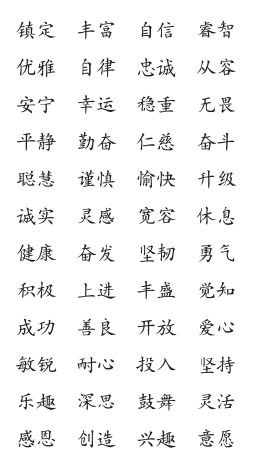 镇定 丰富 自信 睿智
优雅 自律 忠诚 从容
安宁 幸运 稳重 无畏
平静 勤奋 仁慈 奋斗
聪慧 谨慎 愉快 升级
诚实 灵感 宽容 休息
健康 奋发 坚韧 勇气
积极 上进 丰盛 觉知
成功 善良 开放 爱心
敏锐 耐心 投入 坚持
乐趣 深思 鼓舞 灵活
感恩 创造 兴趣 意愿